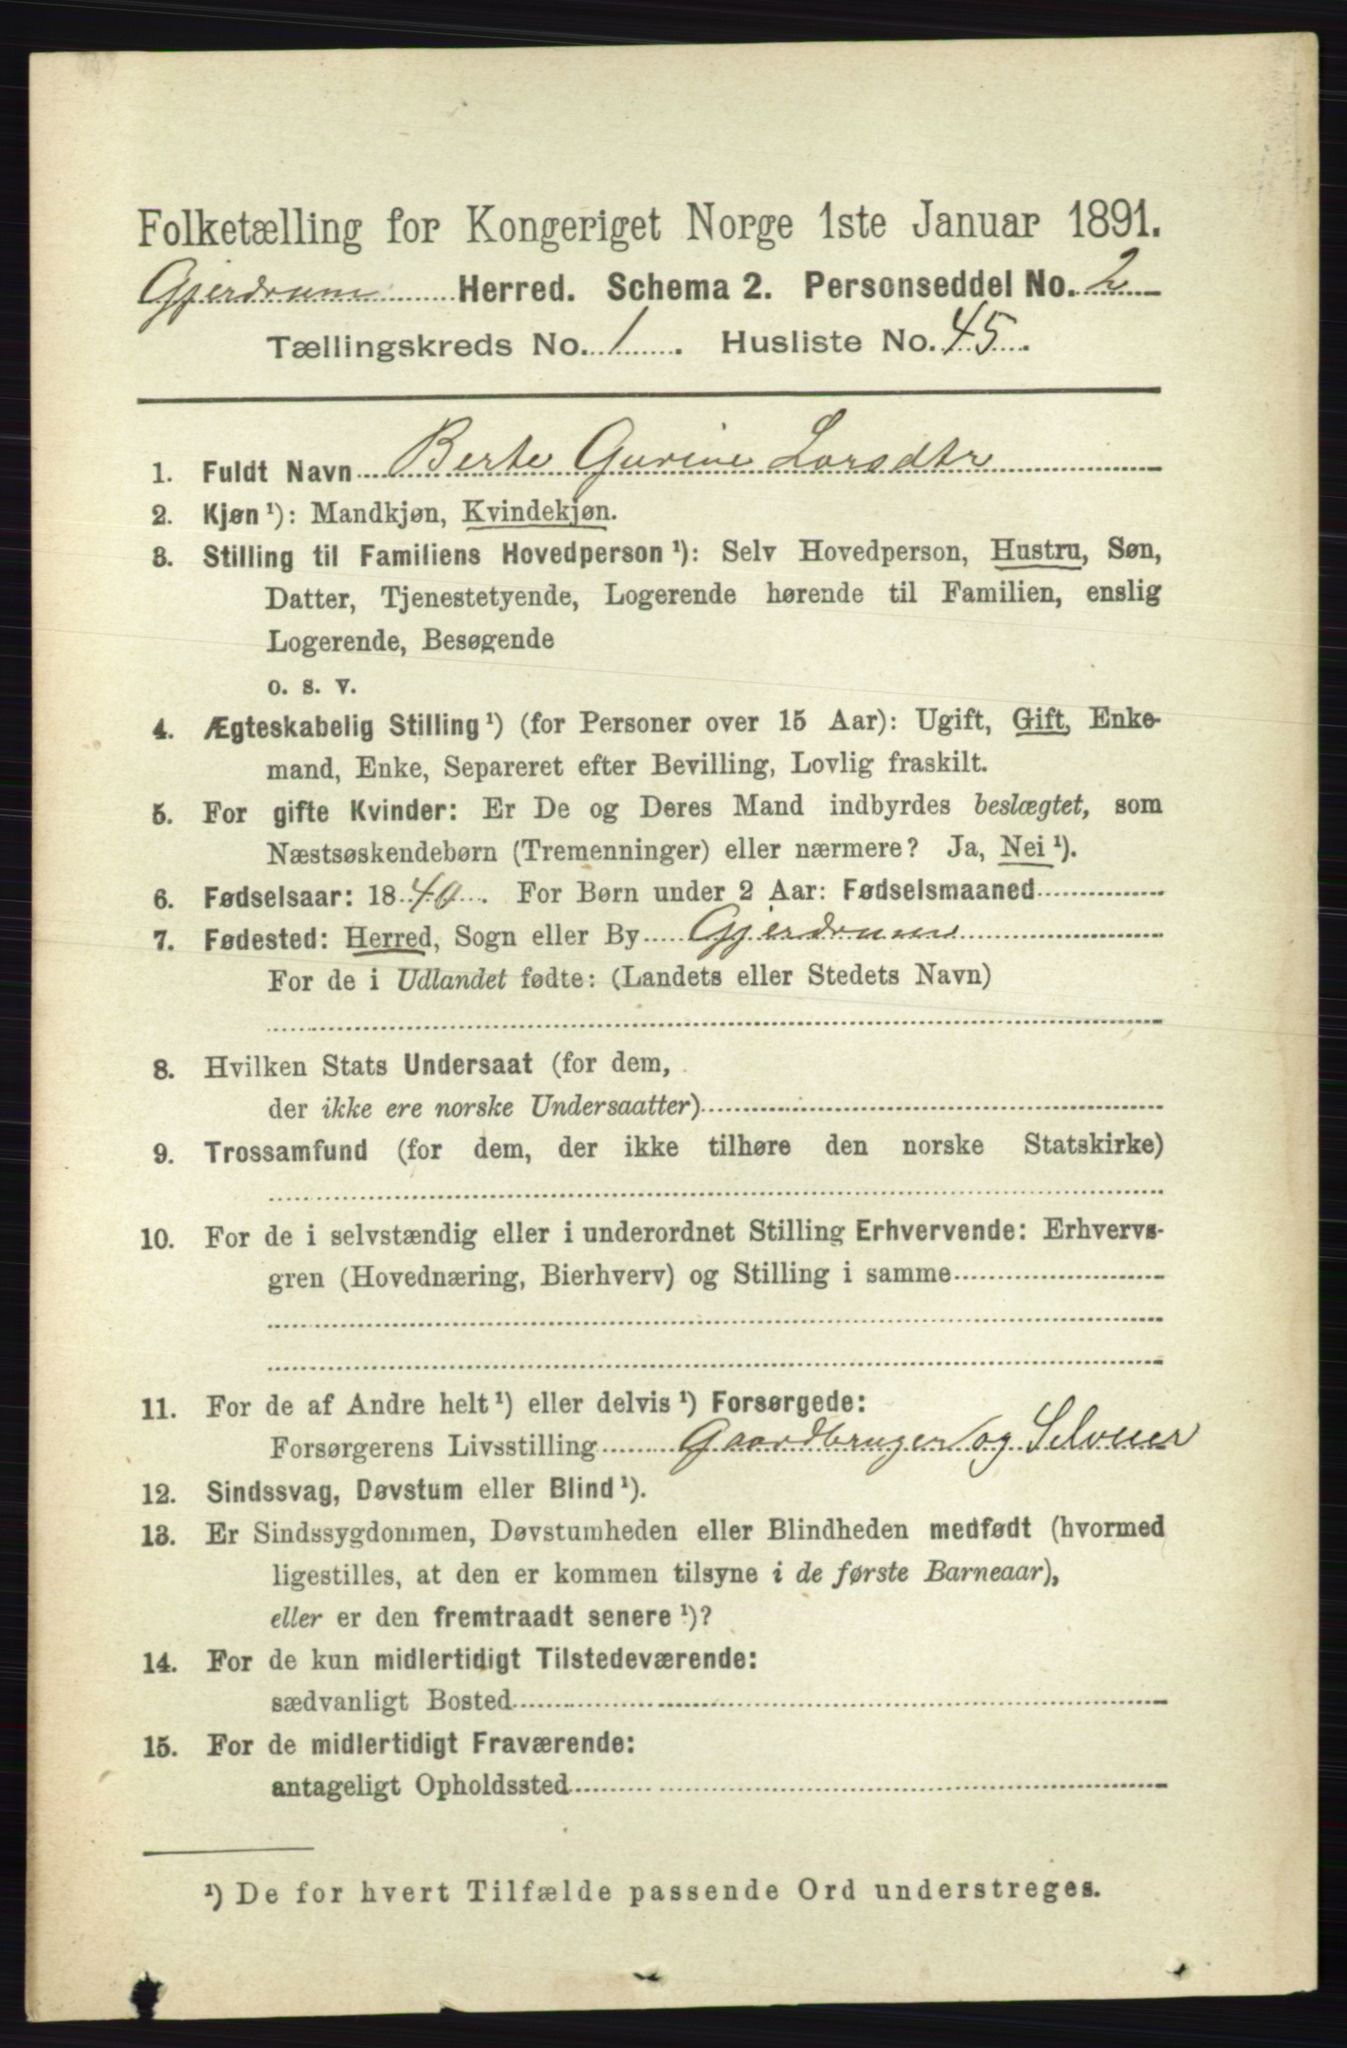 Folketælling for Kongeriget Norge 1ste Januar 1891.
Gjerdrum Herred. Schema 2. Personseddel No. 2
Tællingskreds No. 1. Husliste No. 45.
1. Fuldt Navn Berte Gurine Larsdtr
2. Kjøn ¹): Mandkjøn, Kvindekjøn.
3. Stilling til Familiens Hovedperson ¹): Selv Hovedperson, Hustru, Søn,
Datter, Tjenestetyende, Logerende hørende til Familien, enslig
Logerende, Besøgende
o. s. v.
4. Ægteskabelig Stilling ¹) (for Personer over 15 Aar): Ugift, Gift, Enke-
mand, Enke, Separeret efter Bevilling, Lovlig fraskilt.
5. For gifte Kvinder: Er De og Deres Mand indbyrdes beslægtet, som
Næstsøskendebørn (Tremenninger) eller nærmere? Ja, Nei ¹).
6. Fødselsaar: 1840. For Børn under 2 Aar: Fødselsmaaned
7. Fødested: Herred, Sogn eller By Gjerdrum
For de i Udlandet fødte: (Landets eller Stedets Navn)
8. Hvilken Stats Undersaat (for dem,
der ikke ere norske Undersaatter)
9. Trossamfund (for dem, der ikke tilhøre den norske Statskirke)
10. For de i selvstændig eller i underordnet Stilling Erhvervende: Erhvervs-
gren (Hovednæring, Bierhverv) og Stilling i samme
11. For de af Andre helt ¹) eller delvis ¹) Forsørgede:
Forsørgerens Livsstilling Gaardbruger og Selveier
12. Sindssvag, Døvstum eller Blind ¹).
13. Er Sindssygdommen, Døvstumheden eller Blindheden medfødt (hvormed
ligestilles, at den er kommen tilsyne i de første Barneaar),
eller er den fremtraadt senere ¹)?
14. For de kun midlertidigt Tilstedeværende:
sædvanligt Bosted
15. For de midlertidigt Fraværende:
antageligt Opholdssted
¹) De for hvert Tilfælde passende Ord understreges.